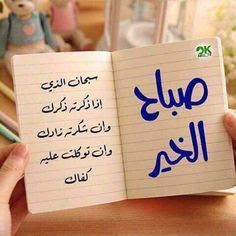 صباح
الخير
سبحان الذي
إذا ذكرته ذكرك
وإن شكرته زادك
وإن توكلت عليه
كفاك
2K